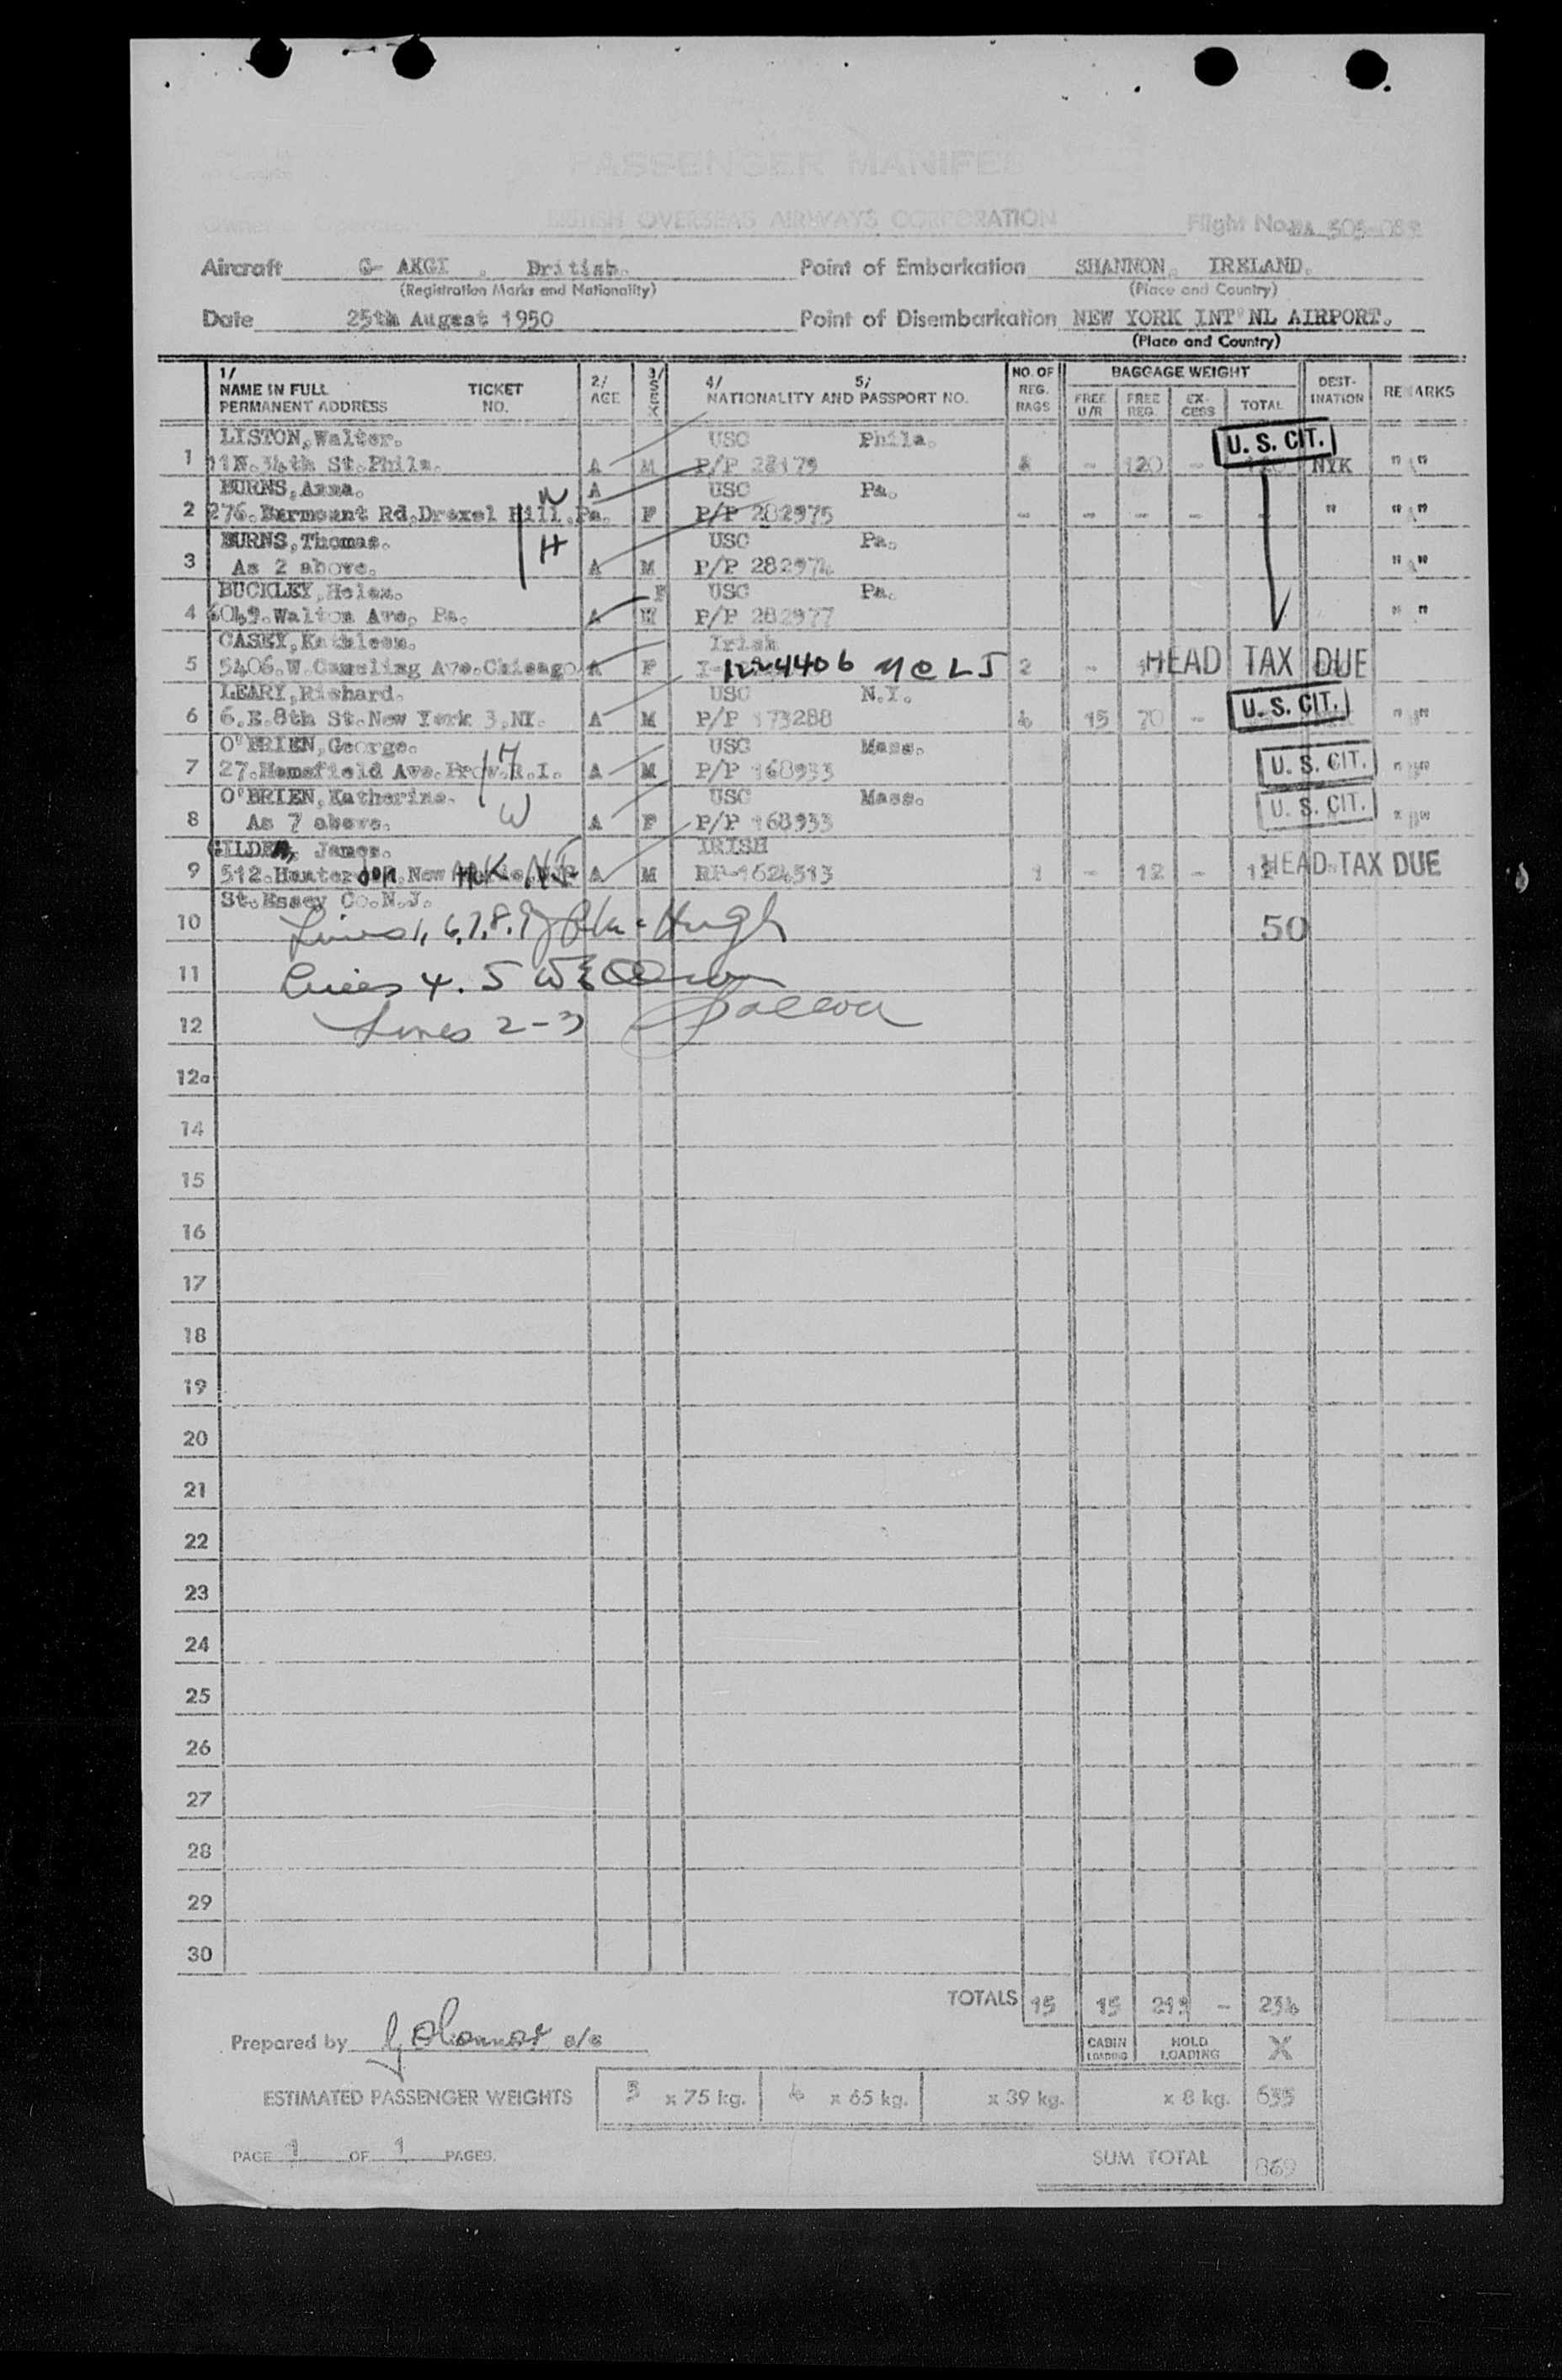 PASSENGER MANIFES
BRITISH OVERSEAS AIRWAYS CORPORATION Flight No. BA 505-089
Aircraft G- AKGI . British. Point of Embarkation SHANNON, IRELAND.
(Registration Marks and Nationality) (Place and Country)
Date 25th August 1950 Point of Disembarkation NEW YORK INT'NL AIRPORT.
(Place and Country)
1/ NAME IN FULL PERMANENT ADDRESS TICKET NO. 2/ AGE 3/ SEX 4/ NATIONALITY AND 5/ PASSPORT NO. NO. OF REG. BAGS BAGGAGE WEIGHT FREE U/R FREE REG. EX-CESS TOTAL DEST-INATION REMARKS
LISTON, Walter. USC Phila. U. S. CIT.
1 11N. 34th St. Phila. A M P/P 28179 - 120 - NYK "A"
BURNS, Anna. W A USC Pa.
2 276. Burmount Rd, Drexel Hill. Pa. F P/P 282975 - - - - - " "A"
BURNS, Thomas. H USC Pa.
3 As 2 above. A M P/P 282974 "A"
BUCKLEY, Helen. F USC Pa.
4 6049. Walton Ave, Pa. A M P/P 282977 " "
CASEY, Kathleen. Irish
5 5406. W. Ave. Chicago A F I-1224406 2 - HEAD TAX DUE
LEARY, Richard. USC N.Y.
6 6. E. 8th St. New York 3, NY. A M P/P 173288 4 15 70 - U. S. CIT.
O'BRIEN, George. H USC Mass.
7 27. Homefield Ave. Prov. R.I. A M P/P 168933 U. S. CIT.
O'BRIEN, Katherine. USC Mass. U. S. CIT.
8 As 7 above. W A F P/P 168933
GILDEA, James. IRISH
9 512. Hunterdon, New NJ A M RP-1624513 1 - 12 - 12 HEAD TAX DUE
St. Essex Co. N.J.
10 Lines 1, 6, 7, 8, 9 McHugh 50
11 Lines 4. 5
12 Lines 2-3
12a
14
15
16
17
18
19
20
21
22
23
24
25
26
27
28
29
30
TOTALS 15 15 219 - 234
Prepared by O'Connor CABIN LOADING HOLD LOADING X
ESTIMATED PASSENGER WEIGHTS 5 x 75 kg. 4 x 65 kg. x 39 kg. x 8 kg. 635
PAGE 1 OF 1 PAGES. SUM TOTAL 869